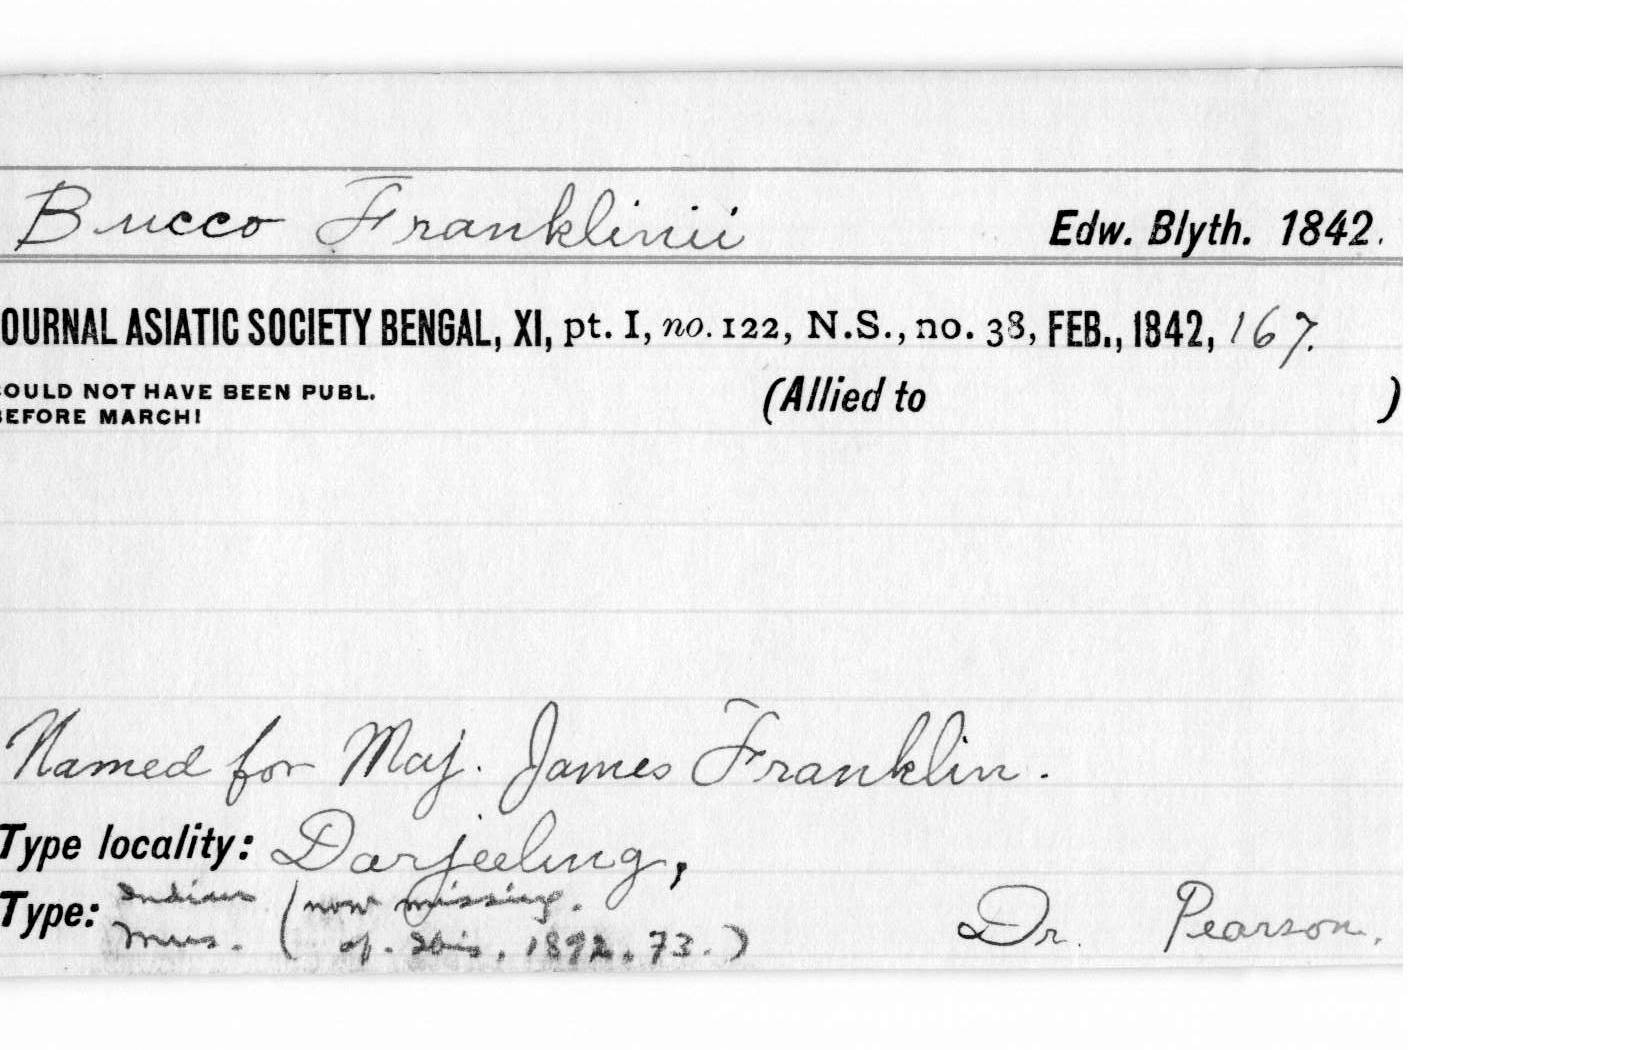 Bucco Franklinii Edw. Blyth. 1842.
OURNAL ASIATIC SOCIETY BENGAL, XI, pt. I, no. 122, N.S., no. 38, FEB., 1842, 167.
OULD NOT HAVE BEEN PUBL. (Allied to )
BEFORE MARCH!
Named for Maj. James Franklin.
Type locality: Darjeeling,
Type: Indian Mus. (now missing. cf. Ibis, 1892, 73.) Dr. Pearson.